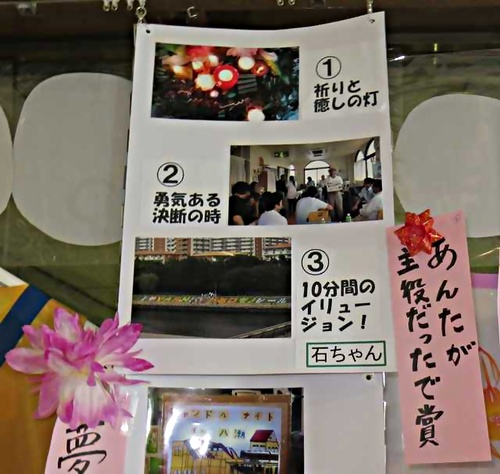 ①
祈りと
癒しの灯
②
勇気ある
決断の時
③
10分間の
イリュー
ジョン！
石ちゃん
あんたが
主役だったで賞
夢
ャンドルナイト
八潮